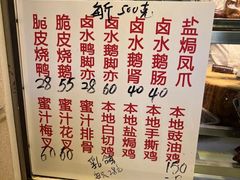 斩500克
盐焗凤爪
卤水鹅肠 40
卤水鹅肾 40
卤水鹅脚亦 60
卤水鸭脚亦 28
脆皮烧鹅 55
脆皮烧鸭 28
本地豉油鸡 150
本地手撕鸡
本地盐焗鸡
本地白切鸡
蜜汁排骨
蜜汁花叉 60
蜜汁梅叉 60
乳鸽